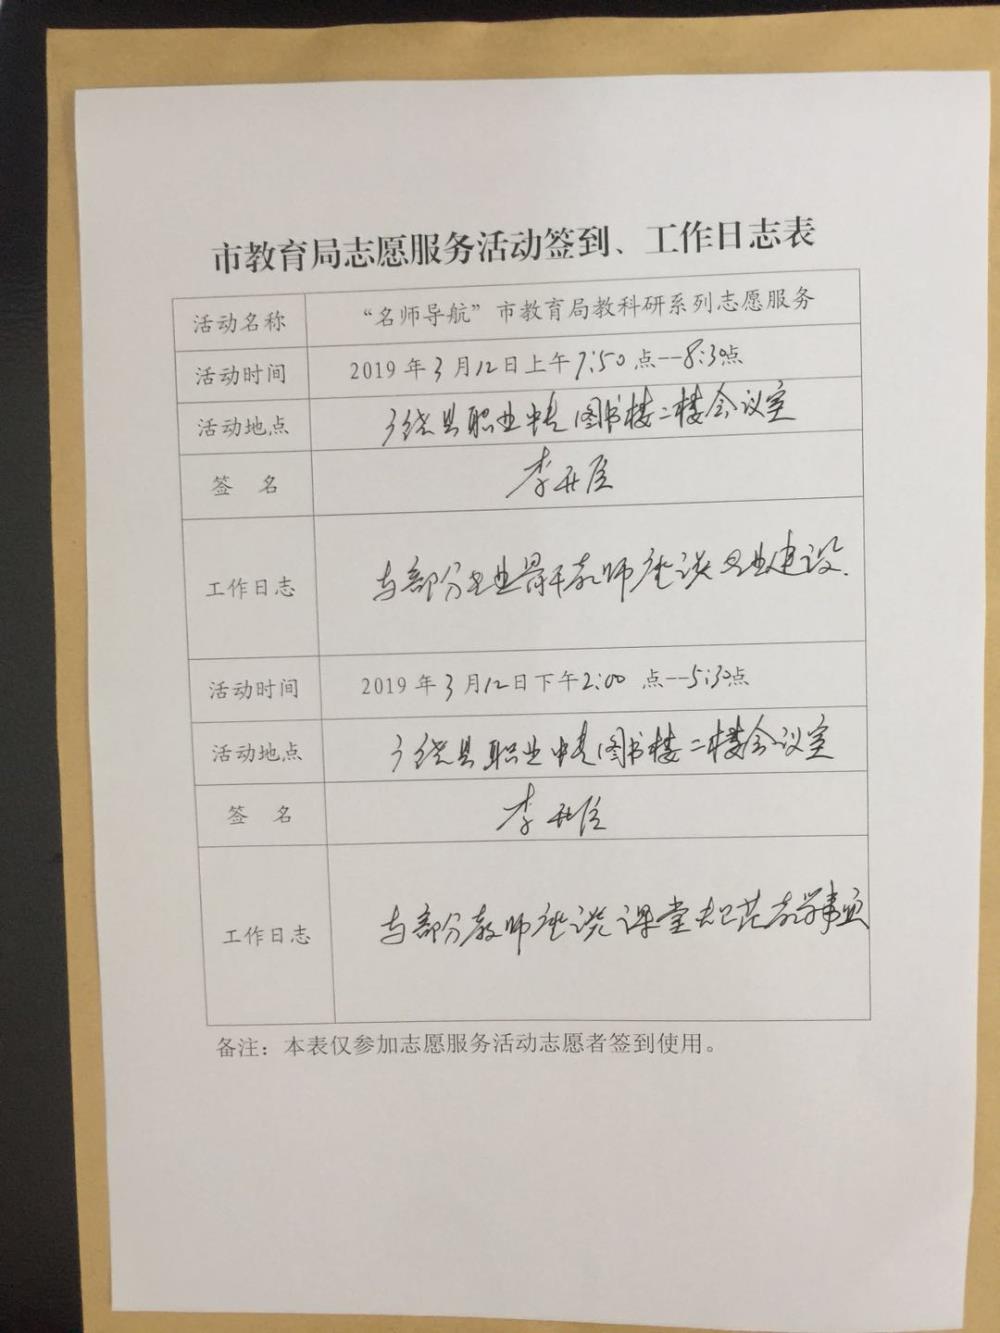 市教育局志愿服务活动签到、工作日志表
活动名称 “名师导航”市教育局教科研系列志愿服务
活动时间 2019年3月12日上午7:50点--8:30点
活动地点 广饶县职业中专图书楼二楼会议室
签 名 李
工作日志 与部分专业骨干教师座谈专业建设.
活动时间 2019年3月12日下午2:00 点--5:30点
活动地点 广饶县职业中专图书楼二楼会议室
签 名 李
工作日志 与部分教师座谈课堂规范教学事宜
备注：本表仅参加志愿服务活动志愿者签到使用。